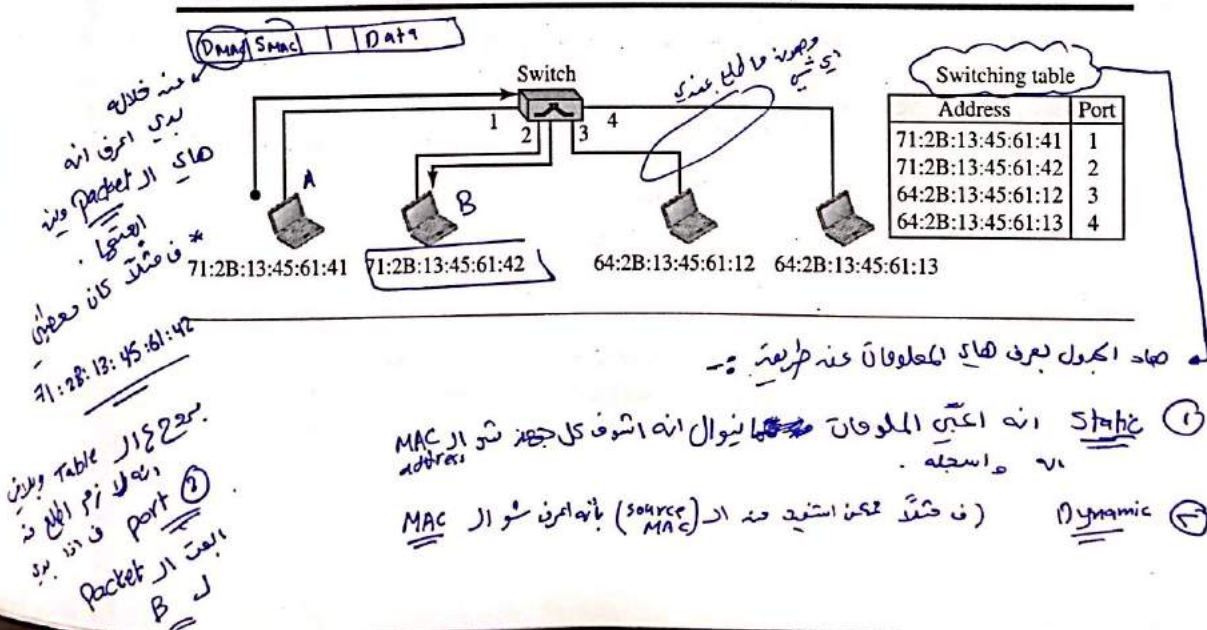 DMAC SMAC Data
من خلاله
بدي اعرف انه
هاي ال packet وين
ابعتها .
* ف مثلاً كان معطيني
71:2B:13:45:61:42
برجع ع ال Table وبلاقي
انه لازم اطلع من
port 2 ف اذا بدي
ابعت ال packet
ل B
Switch
1 2 3 4
A
B
71:2B:13:45:61:41 71:2B:13:45:61:42 64:2B:13:45:61:12 64:2B:13:45:61:13
Switching table
Address Port
71:2B:13:45:61:41 1
71:2B:13:45:61:42 2
64:2B:13:45:61:12 3
64:2B:13:45:61:13 4
الجدول بعرف هاي المعلومات عن طريقة :-
① Static انه اعبي المعلومات مانيوال انه اشوف كل جهاز شو ال MAC address
اله واسجله .
② Dynamic (ف مثلاً ممكن استفيد من ال (source MAC) بأنه اعرف شو ال MAC